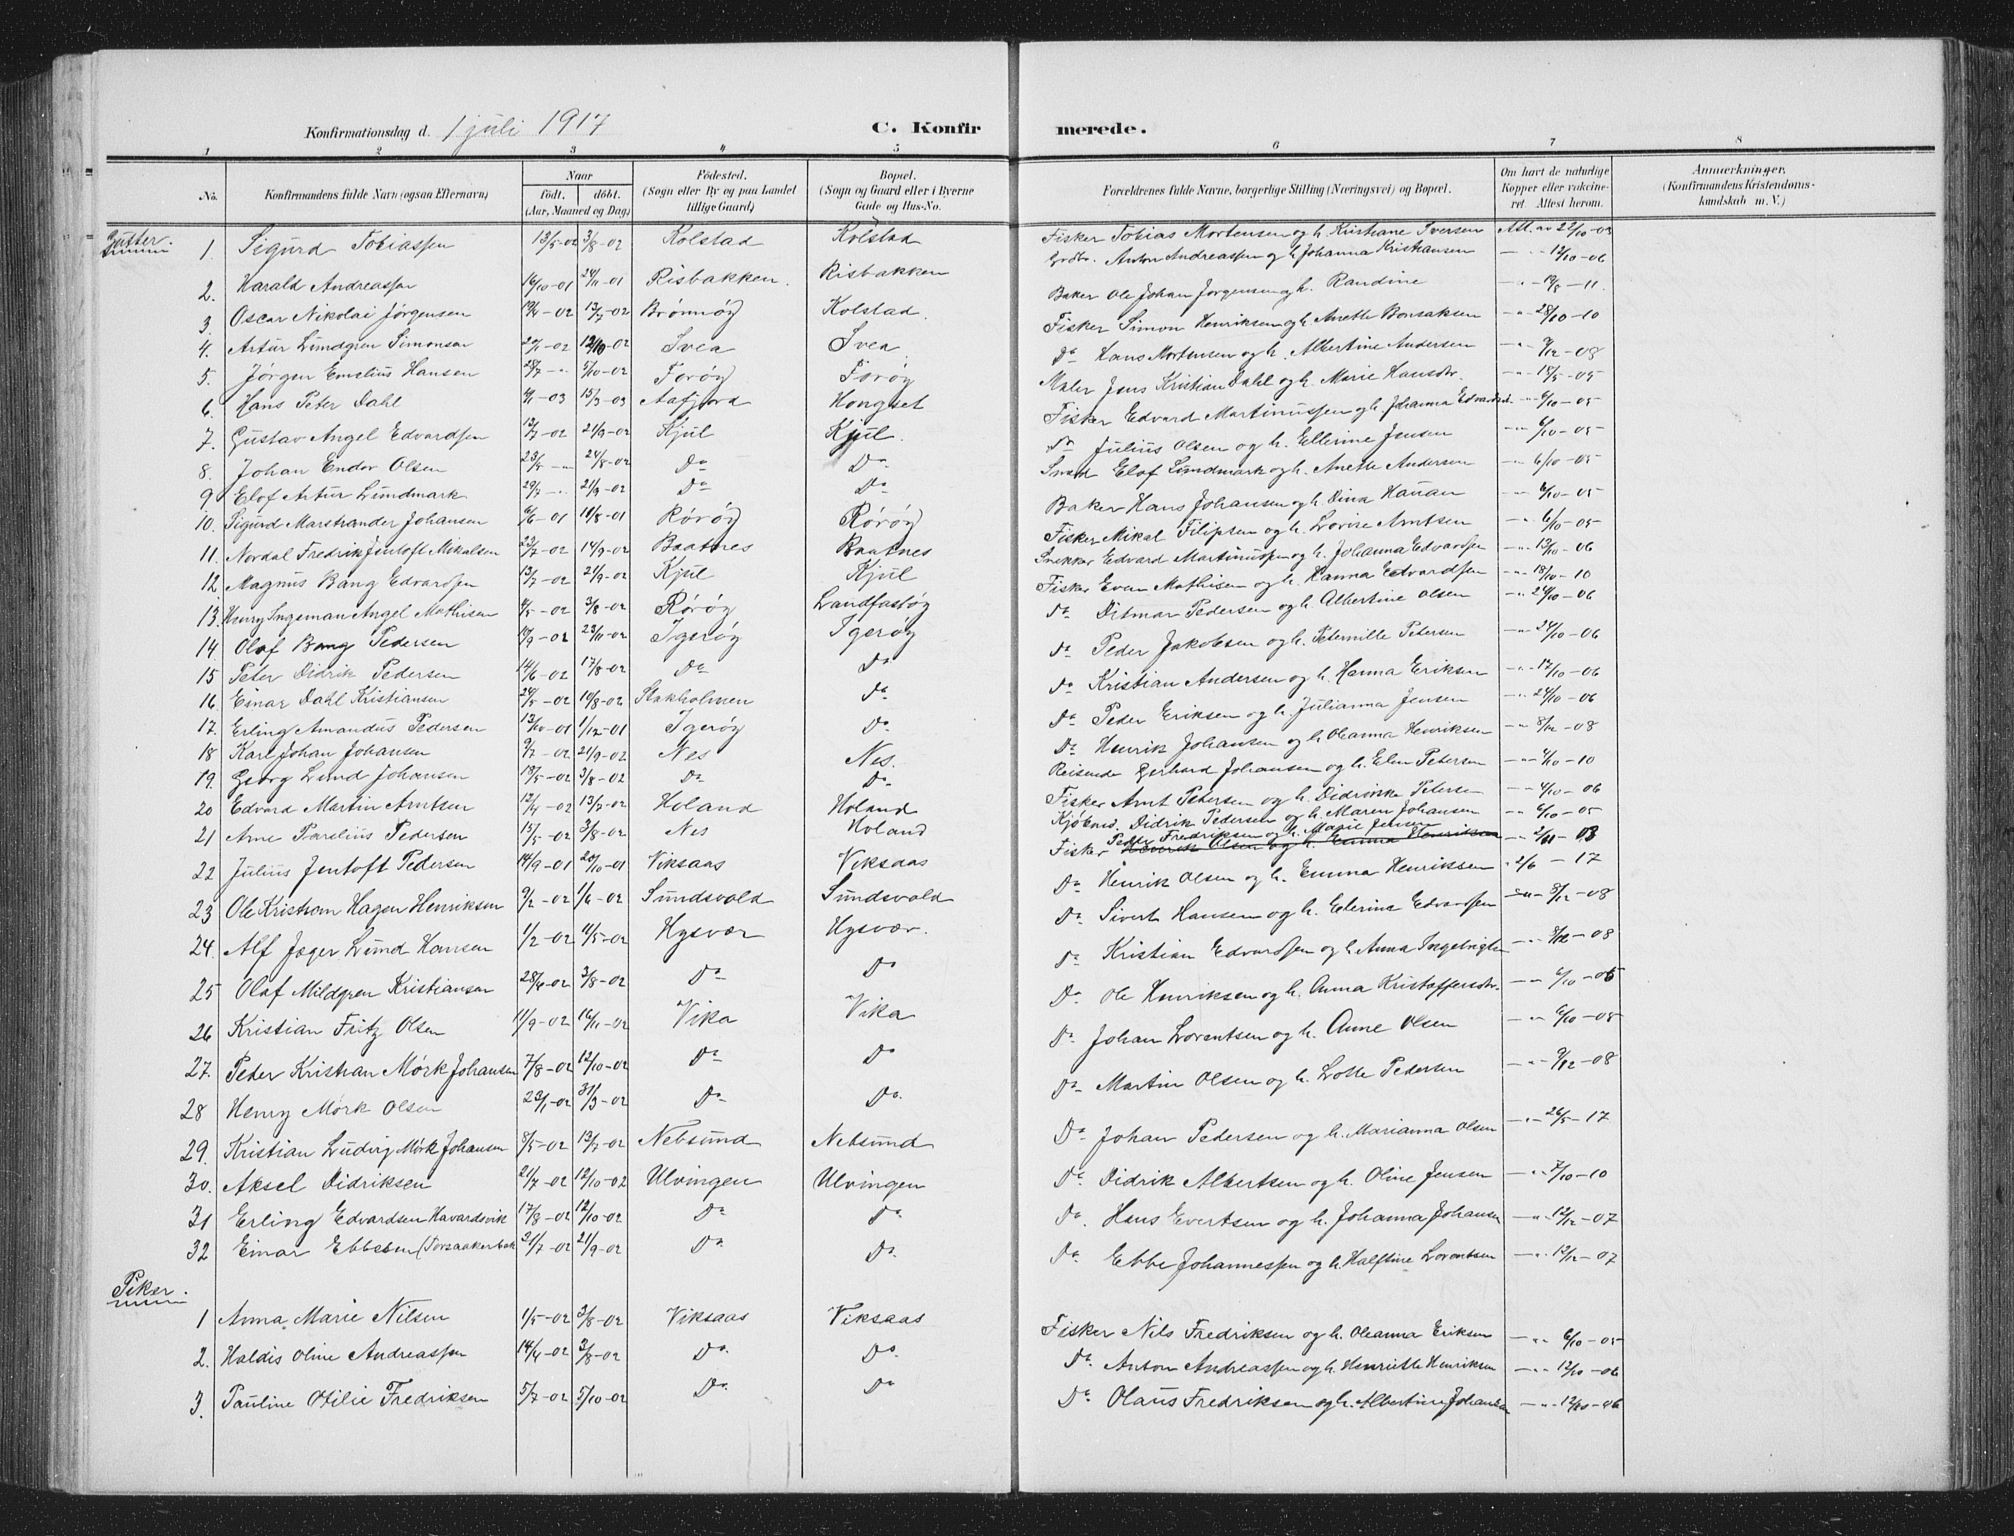 Konfirmationsdag d. 1 juli 1917 C. Konfirmerede.
1 2 3 4 5 6 7 8
No. Konfirmandens fulde Navn (ogsaa Efternavn) Naar født. døbt. (Aar, Maaned og Dag) Fødested. (Sogn eller By og paa Landet tillige Gaard) Bopæl. (Sogn og Gaard eller i Byerne Gade og Hus-No. Forældrenes fulde Navne, borgerlige Stilling (Næringsvei) og Bopæl. Om havt de naturlige Kopper eller vaccineret Attest herom. Anmærkninger. (Konfirmandens Kristendomskundskab m. V.)
Gutter.
1. Sigurd Tobiassen 13/5-02 3/8-02 Kolstad Kolstad Fisker Tobias Mortensen og h. Kristiane Iversen Att. av 22/10-03
2. Harald Andreassen 16/10-01 24/11-01 Risbakken. Risbakken Anton Andreassen og h. Johanna Kristiansen -"- 12/10-06
3. Oscar Nikolai Jørgensen 02 13/7-02 Brønnøy Kolstad. Baker Ole Johan Jørgensen og h. Randine -"- 11.
4. Artur Lundgren Simonsen 02 12/10-02 Svea Svea Fisker Simon Henriksen og h. Anette Bonsaksen -"- 28/10-10
5. Jørgen Emelius Hansen 28/7 -"- 5/10-02 Forøy Forøy Do Hans Mortensen og h. Albertine Andersen -"- 9/12-08
6. Hans Peter Dahl 03 15/3-03 Aafjord Hongset Maler Jens Kristian Dahl og h. Marie Hansdtr. -"- 18/5-05
7. Gustav Angel Edvardsen 13/7-02 21/9-02 Kjul Kjul. Fisker Edvard Martinussen og h. Johanna Edvardsd. -"- 6/10-05
8. Johan Endor Olsen 23/5 -"- 24/8-02 Do Do. Do Julius Olsen og h. Ellerine Jensen -"- 6/10-05
9. Elof Artur Lundmark 29/7 -"- 21/9-02 Do Do Smed Elof Lundmark og h. Anette Andersen -"- 6/10-05
10. Sigurd Marstrander Johansen 6/6-01 11/8-01 Rørøy Rørøy Baker Hans Johansen og h. Dina Hauan -"- 6/10-05
11. Nordal Fredrik Jentoft Mikalsen 23/7-02 14/9-02 Baatnes Baatnes Fisker Mikal Filipsen og h. Lovise Arntsen -"- 6/10-05
12. Magnus Bang Edvardsen 13/7-02 21/9-02 Kjul Kjul Snekker Edvard Martinussen og h. Johanna Edvardsen -"- 13/10-06
13. Henry Ingeman Angel Mathisen 4/5-02 3/8-02 Rørøy Landfastøy Fisker Even Mathisen og h. Hanna Edvardsen -"- 18/10-10
14. Olaf Bang Pedersen 02 23/11-02 Igerøy Igerøy Do Ditmar Pedersen og h. Albertine Olsen -"- 24/10-06
15 Peter Didrik Pedersen 14/6-02 17/8-02 Do Do Do Peder Jakobsen og h. Petemille Petersen -"- 24/10-06
16. Einar Dahl Kristiansen 24/5-02 10/8-02 Stokholmen Do Do Kristian Andersen og h. Hanna Eriksen -"- 12/10-06
17. Erling Amandus Pedersen 13/10-01 1/12-01 Igerøy Do. Do Peder Eriksen og h. Julianna Jensen -"- 24/10-06
18 Karl Johan Johansen 9/7-02 21/9-02 Nes Nes. Do Henrik Johansen og h. Oleanna Henriksen -"- 8/12-08
19. Georg Lund Johansen 18/5-02 3/8-02 Do Do Reisende Gerhard Johansen og h. Elen Petersen -"- 4/10-10
20 Edvard Martin Arntsen 12/4-02 13/7-02 Holand Holand Fisker Arnt Petersen og h. Didrikke Petersen -"- 4/10-06
21 Arne Parelius Pedersen 15/5-02 3/8-02 Nes Holand Kjøbmd. Didrik Pedersen og h. Maren Johansen -"- 6/10-05
22 Julius Jentoft Pedersen 14/9-01 20/10-01 Viksaas Viksaas Fisker Peder Fredriksen og h. Marie Jensen Henrik Olsen og h. Emma Henriksen -"- 2/11-03
23 Ole Kristian Hagen Henriksen 9/2-02 1/6-02 Sundsvold Sundsvold Do Henrik Olsen og h. Emma Henriksen 2/6-17
24. Alf Jæger Lund Hansen 1/2-02 4/5-02 Hysvær Hysvær. Do Sivert Hansen og h. Elerine Edvardsen -"- 8/12-08
25 Olaf Mildgren Kristiansen 28/6-02 3/8-02 Do Do Do Kristian Edvardsen og h. Anna Ingebrigtsen -"- 8/12-08
26 Kristian Fritz Olsen 11/9-02 16/11-02 Vika Vika Do. Ole Henriksen og h. Anna Kristoffersdtr. -"- 6/10-05
27. Peder Kristian Mørk Johansen 7/8-02 12/10-02 Do Do Do Johan Lorentsen og h. Anne Olsen -"- 6/10-05
28 Henry Mørk Olsen 23/1-02 31/3-02 Do Do. Do Martin Olsen og h. Lotte Pedersen -"- 9/12-08
29. Kristian Ludvig Mørk Johansen 8/5-02 13/7-02 Nebsund Nebsund Do Johan Pedersen og h. Marianna Olsen -"- 26/5-17
30. Aksel Didriksen 21/7-02 12/10-02 Ulvingen Ulvingen Do Didrik Albertsen og h. Oline Jensen -"- 7/10-10
31 Erling Edvardsen Havardsvik 17/8-02 12/10-02 Do Do Do. Hans Evertsen og h. Johanna Johansen -"- 12/12-07
32 Einar Ebbesen (Torsaakerbak 31/7-02 21/9-02 Do. Do. Do Ebbe Johannessen og h. Halftine Lorentsen -"- 12/12-07
Piker.
1 Anna Marie Nilsen 1/5-02 3/8-02 Viksaas Viksaas Fisker Nils Fredriksen og h. Oleanna Eriksen -"- 6/10-05
2. Haldis Oline Andreassen 14/4-02 3/8-02 Do. Do. Do. Anton Andreassen og h. Henriette Henriksen -"- 12/10-06
3. Pauline Otilie Fredriksen 5/7-02 5/10-02 Do. Do Do Olaus Fredriksen og h. Albertine Johansen -"- 12/10-06